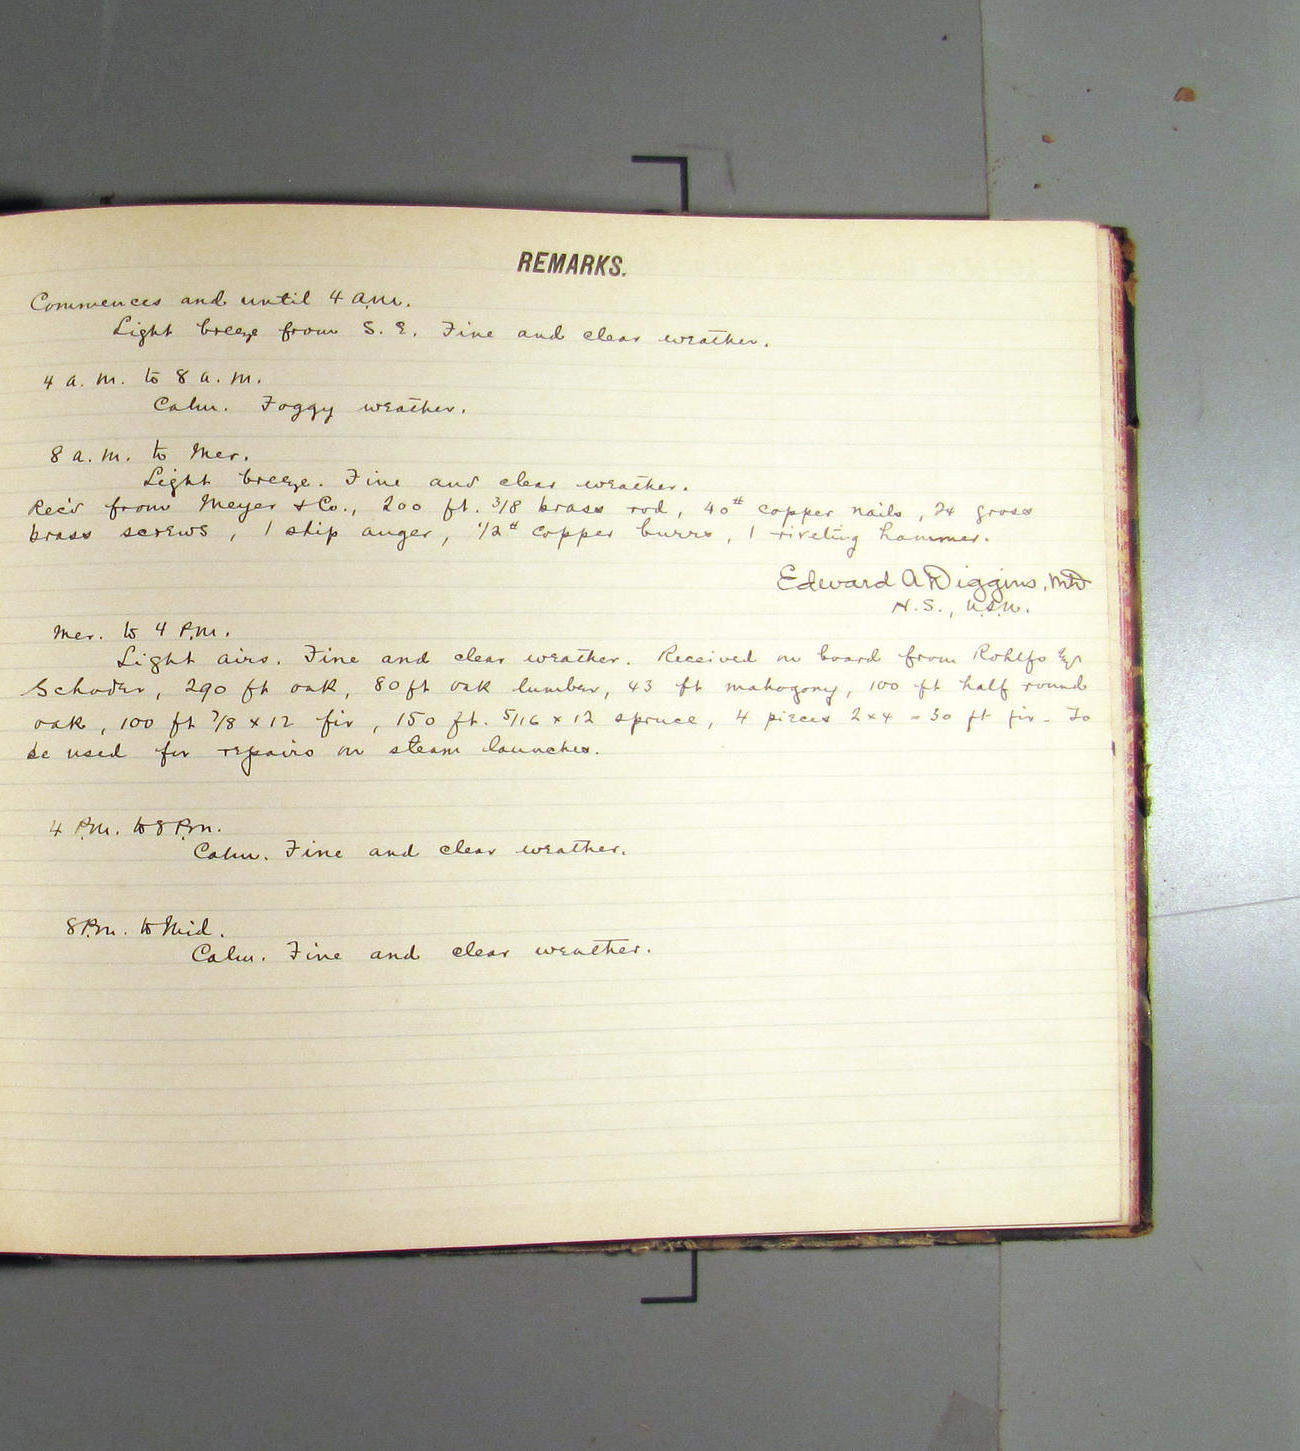 REMARKS.
Commences and until 4 a.m.
Light breeze from S. E. Fine and clear weather.
4 a. m. to 8 a. m.
Calm. Foggy weather.
8 a. m. to Mer.
Light breeze. Fine and clear weather.
Rec'd from Meyer & Co., 200 ft. 3/8 brass rod, 40# copper nails, 24 gross
brass screws, 1 ship auger, 1/2# copper burrs, 1 riveting hammer.
Edward A Diggins,
N. S., U.S.N.
Mer. to 4 P.m.
Light airs. Fine and clear weather. Received on board from Rohlfs &
Schoder, 290 ft oak, 80 ft oak lumber, 43 ft mahogony, 100 ft half round
oak, 100 ft 7/8 x 12 fir, 150 ft. 5/16 x 12 spruce, 4 pieces 2x4 - 30 ft fir - To
be used for repairs on steam launches.
4 P.m. to 8 P.m.
Calm. Fine and clear weather.
8 P.m. to Mid.
Calm. Fine and clear weather.